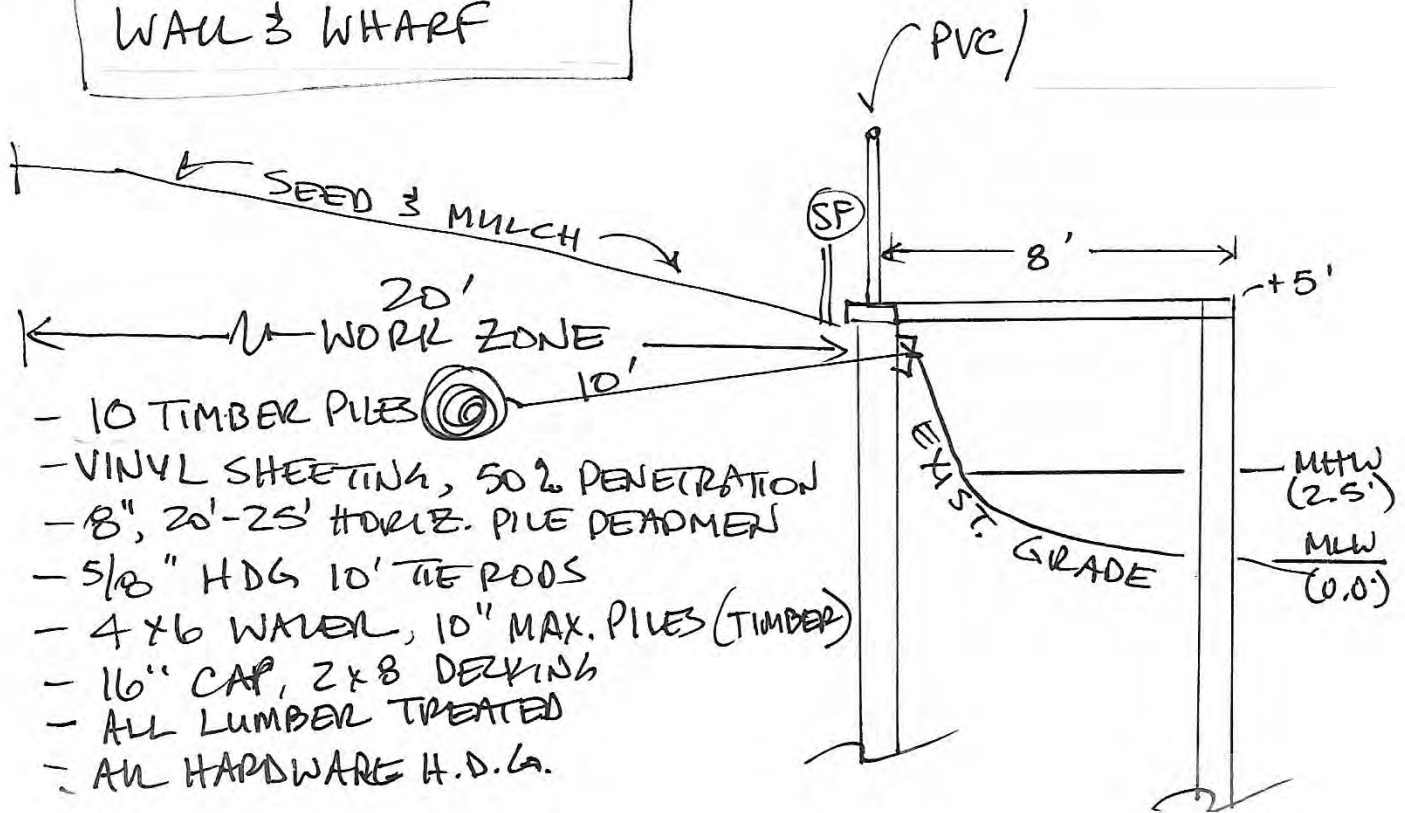 WALL & WHARF
PVC/
SEED & MULCH
SF
8'
+5'
20'
WORK ZONE
10'
- 10 TIMBER PILES
- VINYL SHEETING, 50% PENETRATION
- 8", 20'-25' HORIZ. PILE DEADMEN
- 5/8" HDG 10' TIE RODS
- 4x6 WALER, 10" MAX. PILES (TIMBER)
- 16" CAP, 2x8 DECKING
- ALL LUMBER TREATED
- ALL HARDWARE H.D.G.
EXIST. GRADE
MHW
(2.5')
MLW
(0.0')